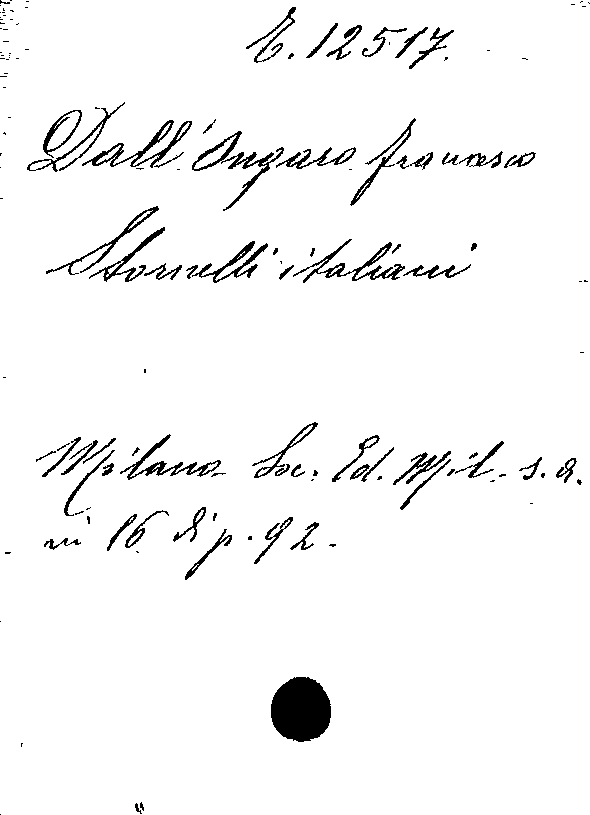 E. 12517.
Dall'Ongaro Francesco
Stornelli italiani
Milano Soc. Ed. Mil. s. a.
in 16 di p. 92.